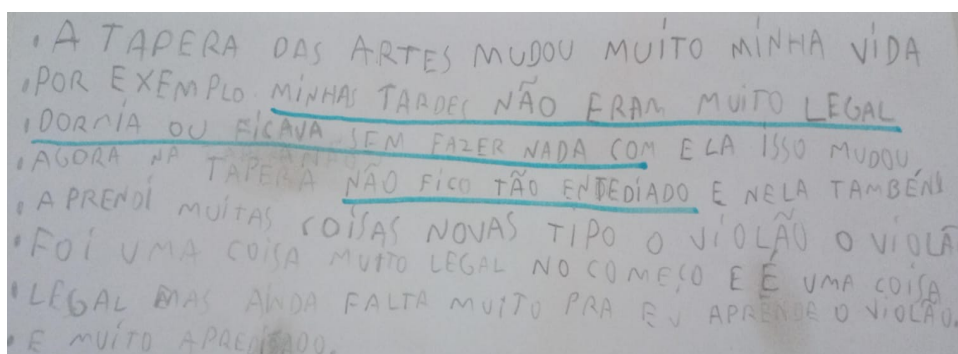 . A TAPERA DAS ARTES MUDOU MUITO MINHA VIDA
. POR EXEMPLO MINHAS TARDES NÃO ERAM MUITO LEGAL
. DORMIA OU FICAVA SEM FAZER NADA COM ELA ISSO MUDOU,
. AGORA NA TAPERA NÃO FICO TÃO ENTEDIADO E NELA TAMBÉM
. APRENDI MUITAS COISAS NOVAS TIPO O VIOLÃO O VIOLÃ
. FOI UMA COISA MUITO LEGAL NO COMEÇO E É UMA COISA
. LEGAL MAS AINDA FALTA MUITO PRA EU APRENDE O VIOLÃO.
. E MUITO